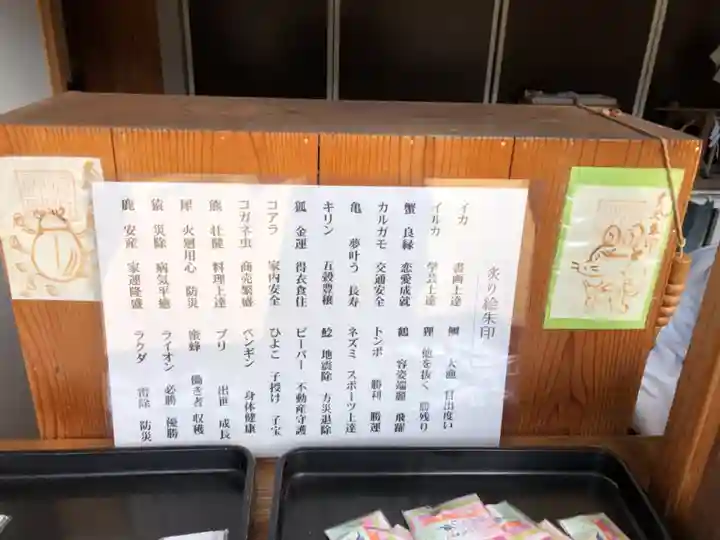 炙り絵朱印
イカ 書画上達
イルカ 学芸上達
蟹 良縁 恋愛成就
カルガモ 交通安全
亀 夢叶う 長寿
キリン 五穀豊穣
狐 金運 得衣食住
コアラ 家内安全
コガネ虫 商売繁盛
熊 壮健 料理上達
犀 火廻用心 防災
猿 災除 病気平癒
鹿 安産 家運隆盛
鯛 大漁 目出度い
狸 他を抜く 勝残り
鶴 容姿端麗 飛躍
トンボ 勝利 勝運
ネズミ スポーツ上達
鯰 地震除 方災退除
ビーバー 不動産守護
ひよこ 子授け 子宝
ペンギン 身体健康
ブリ 出世 成長
蜜蜂 働き者 収穫
ライオン 必勝 優勝
ラクダ 雷除 防災